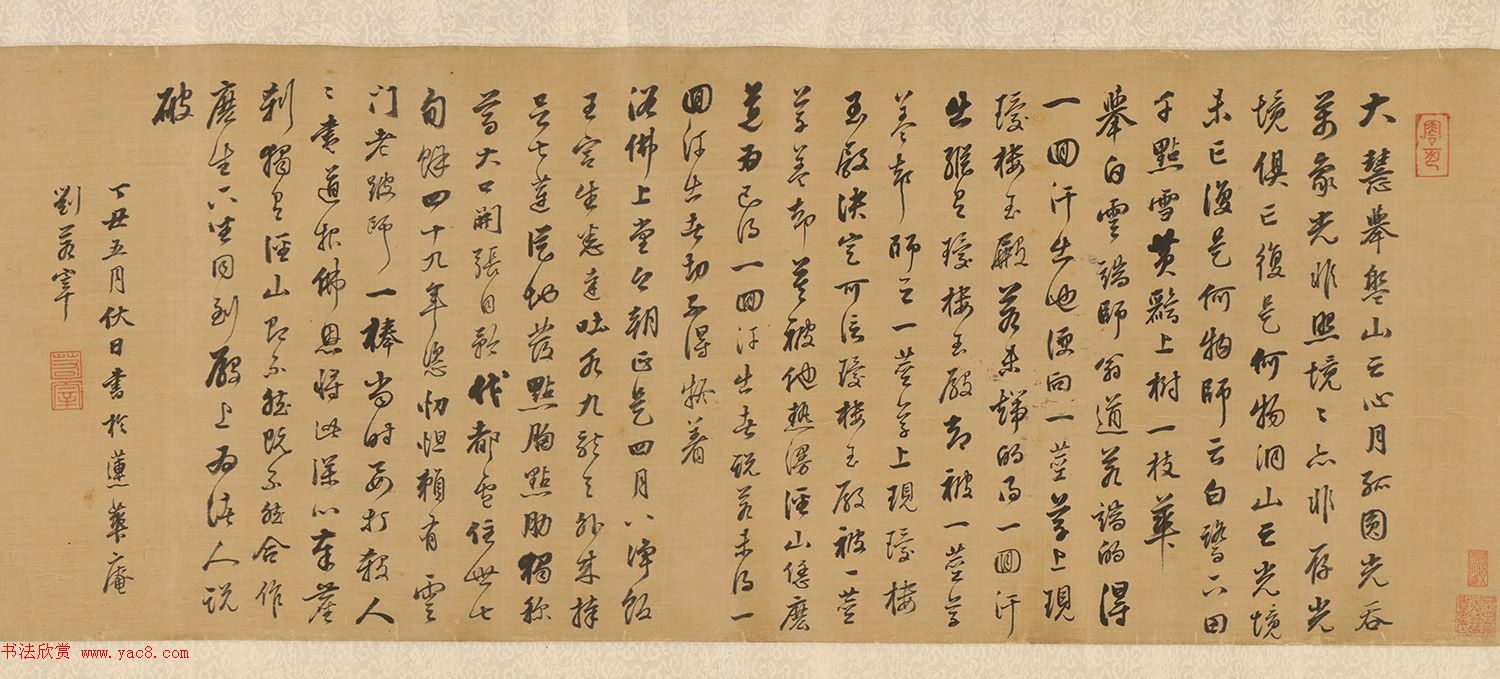 大慧舉盤山云心月孤圓光吞
萬象光非照境境亦非存光
境俱亡復是何物洞山云光境
未亡復是何物師云白鷺下田
千點雪黃鸝上樹一枝華
舉白雲端師翁道若端的得
一回汗出也便向一莖草上現
瓊樓玉殿若未端的得一回汗
出縱有瓊樓玉殿却被一莖草
蓋却師云一莖草上現瓊樓
玉殿決定可信瓊樓玉殿被一莖
草蓋却莫被他熱謾徑山恁麼
道為已得一回汗出者說若未得一
回汗出者切不得疑着
浴佛上堂今朝正是四月八淨飯
王宮生悉達吐水九龍天外來捧
足七蓮從地發點胸點肋獨称
尊大口開張自矜伐都盧住世七
旬餘四十九年恣忉怛賴有雲
门老跛師一棒當時要打殺人
人盡道报佛恩將此深心奉塵
刹獨有徑山即不然既不然合作
麼生下坐同到殿上為諸人說
破
丁丑五月伏日書於蓮華庵
劉若宰
书法欣赏 www.yac8.com